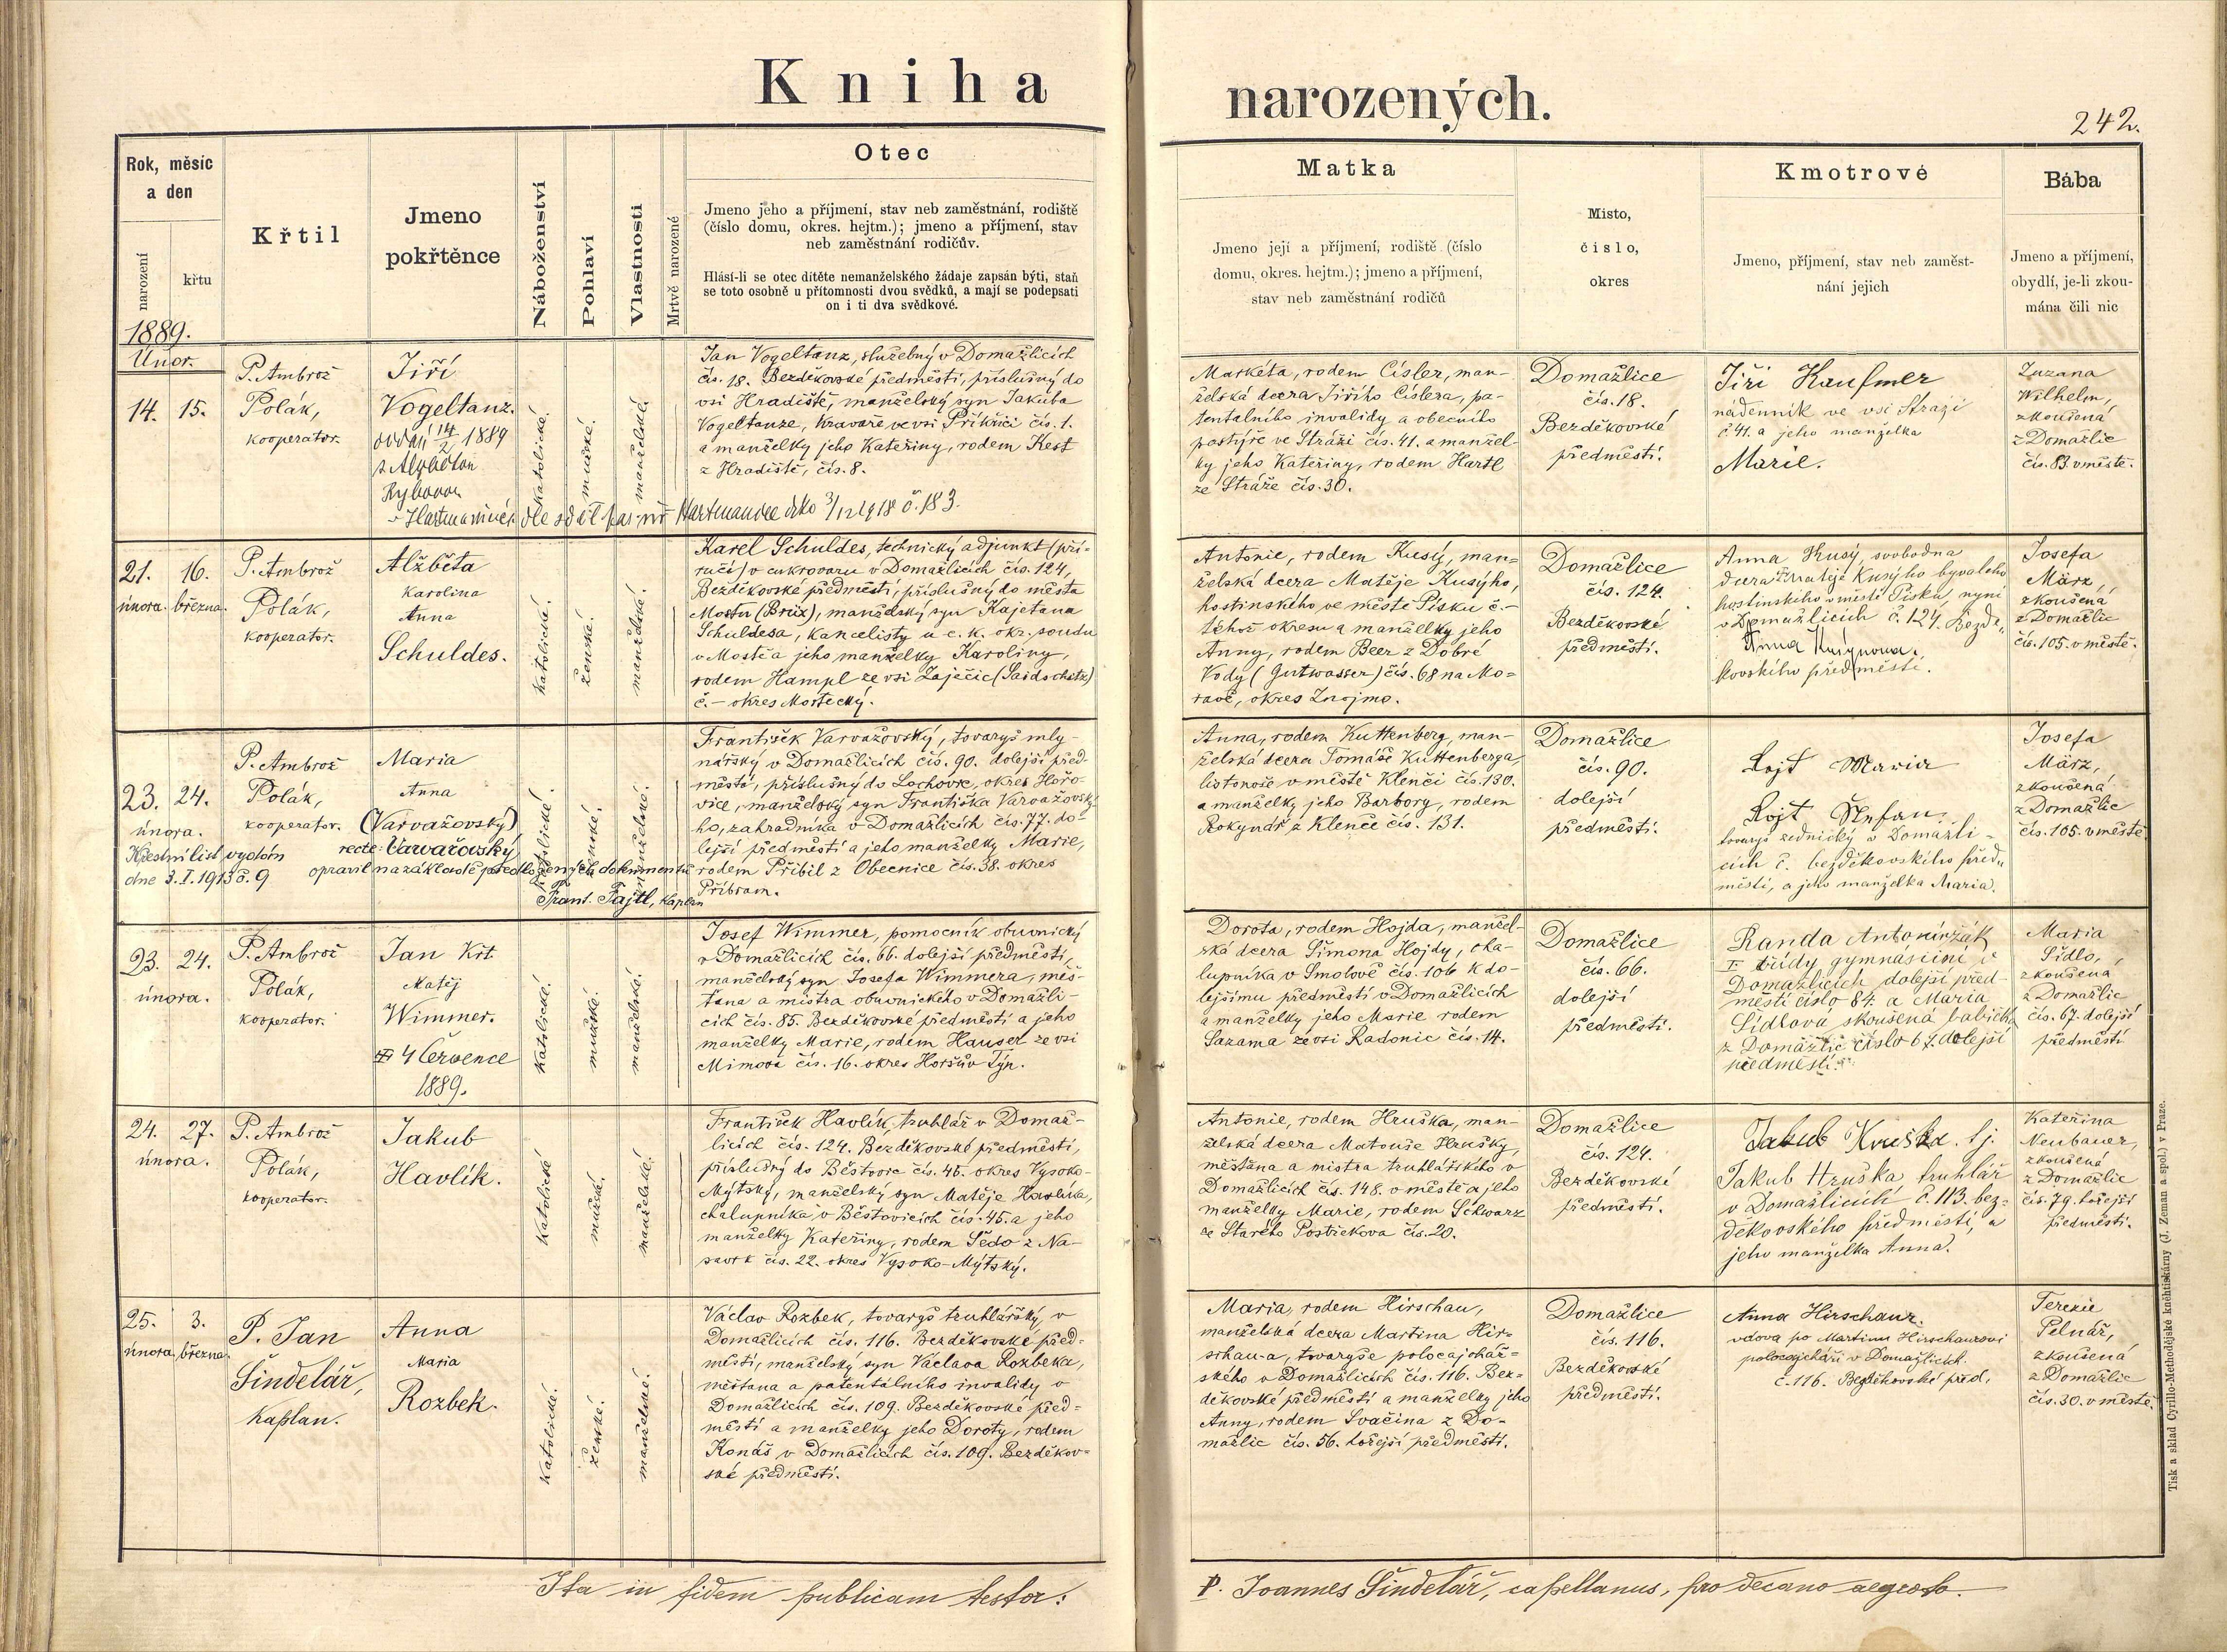 Kniha
narozených.
242.
Rok, měsíc
a den
narození
křtu
1889.
Křtil
Jmeno
pokřtěnce
Náboženství
Pohlaví
Vlastnosti
Mrtvě narozené
Otec
Jmeno jeho a příjmení, stav neb zaměstnání, rodiště
(číslo domu, okres. hejtm.); jmeno a příjmení, stav
neb zaměstnání rodičův.
Hlásí-li se otec dítěte nemanželského žádaje zapsán býti, staň
se toto osobně u přítomnosti dvou svědků, a mají se podepsati
on i ti dva svědkové.
Matka
Jmeno její a příjmení, rodiště (číslo
domu, okres. hejtm.); jmeno a příjmení,
stav neb zaměstnání rodičů
Místo,
číslo,
okres
Kmotrové
Jmeno, příjmení, stav neb zaměst-
nání jejich
Bába
Jmeno a příjmení,
obydlí, je-li zkou-
mána čili nic
Únor.
14. 15.
P. Ambrož
Polák,
kooperator.
Jiří
Vogeltanz.
oddán 14/2 1889
s Alžbětou
v Hartmanicích dle sděl. far. úř. Hartmanice dto 3/12 1918 č. 183.
katolické.
mužské.
manželské.
Jan Vogeltanz, služebný v Domažlicích
čís. 18. Bezděkovské předměstí, příslušný do
vsi Hradiště, manželský syn Jakuba
Vogeltanze, kravaře ve vsi Příkřici čís. 1.
a manželky jeho Kateřiny, rodem Kest
z Hradiště, čís. 8.
Markéta, rodem Císler, man-
želská dcera Jiřího Císlera, pa-
tentalního invalidy a obecního
pastýře ve Stráži čís. 41. a manžel-
ky jeho Kateřiny, rodem Hartl
ze Stráže čís. 30.
Domažlice
čís. 18.
Bezděkovské
předměstí.
Jiří Kaufmer
nádenník ve vsi Stráži
č. 41. a jeho manželka
Marie.
Zuzana
Wilhelm,
zkoušená
z Domažlic
čís. 83. v městě.
21. 16.
února. března.
P. Ambrož
Polák,
kooperator.
Alžběta
Karolina
Anna
Schuldes.
katolické.
ženské.
manželské.
Karel Schuldes, technický adjunkt (pří-
ručí) v cukrovaru v Domažlicích čís. 124,
Bezděkovské předměstí, příslušný do města
Mostu (Brüx), manželský syn Kajetana
Schuldesa, kancelisty u c. k. okr. soudu
v Mostě a jeho manželky Karoliny,
rodem Hampl ze vsi Zaječic (Saidschitz)
č. – okres Mostecký.
Antonie, rodem Kusý, man-
želská dcera Matěje Kusýho,
hostinského ve městě Písku č. –
téhož okresu a manželky jeho
Anny, rodem Beer z Dobré
Vody (Gutwasser) čís. 68 na Mo-
ravě, okres Znojmo.
Domažlice
čís. 124.
Bezděkovské
předměstí.
Anna Kusý, svobodna
dcera Matěje Kusýho bývalého
hostinského v městě Písku, nyní
v Domažlicích č. 124. Bezdě-
Anna Kusýnova.
kovského předměstí.
Josefa
März,
zkoušená
z Domažlic
čís. 105. v městě.
23. 24.
února.
P. Ambrož
Polák,
kooperator.
Maria
Anna
(Varvažovský)
recte: Varvařovský
opravil na základě předložených dokumentů
Frant. Fajtl, kaplan
Křestní list vydán
dne 3. I. 1913 č. 9
katolické.
ženské.
manželské.
František Varvažovský, tovaryš mly-
nářský v Domažlicích čís. 90. dolejší před-
městí, příslušný do Lochovic, okres Hořo-
vice, manželský syn Františka Varvažovské-
ho, zahradníka v Domažlicích čís. 77. do-
lejší předměstí a jeho manželky Marie,
rodem Přibil z Obecnice čís. 38. okres
Příbram.
Anna, rodem Kuttenberg, man-
želská dcera Tomáše Kuttenberga,
listonoše v městě Klenči čís. 130.
a manželky jeho Barbory, rodem
Rokynář z Klenče čís. 131.
Domažlice
čís. 90.
dolejší
předměstí.
Lojt Maria
Lojt Štefan.
tovaryš zednický v Domažli-
cích č. bezděkovského před-
městí, a jeho manželka Maria.
Josefa
März,
zkoušená
z Domažlic
čís. 105. v městě.
23. 24.
února.
P. Ambrož
Polák,
kooperator.
Jan Křt.
Matěj
Wimmer.
4 Července
1889.
katolické.
mužské.
manželské.
Josef Wimmer, pomocník obuvnický
v Domažlicích čís. 66. dolejší předměstí,
manželský syn Josefa Wimmera, měš-
ťana a mistra obuvnického v Domažli-
cích čís. 85. Bezděkovské předměstí a jeho
manželky Marie, rodem Hauser ze vsi
Mimova čís. 16. okres Horšův Týn.
Dorota, rodem Hojda, manžel-
ská dcera Šimona Hojdy, cha-
lupníka v Smolově čís. 106 k do-
lejšímu předměstí v Domažlicích
a manželky jeho Marie rodem
Sazama ze vsi Radonic čís. 14.
Domažlice
čís. 66.
dolejší
předměstí.
Randa Antonín žák
I. třídy gymnásijní v
Domažlicích dolejší před-
městí číslo 84. a Maria
Šídlová skoušená babička
z Domažlic číslo 67. dolejší
předměstí.
Maria
Šídlo,
zkoušená
z Domažlic
čís. 67. dolejší
předměstí
24. 27.
února.
P. Ambrož
Polák,
kooperator.
Jakub
Havlík.
katolické
mužské.
manželské.
František Havlík, truhlář v Domaž-
licích čís. 124. Bezděkovské předměstí,
příslušný do Běstovic čís. 45. okres Vysoko-
Mýtský, manželský syn Matěje Havlíka,
chalupníka v Běstovicích čís. 45. a jeho
manželky Kateřiny, rodem Šedo z Na-
savrk čís. 22. okres Vysoko-Mýtský.
Antonie, rodem Hruška, man-
želská dcera Matouše Hrušky,
měšťana a mistra truhlářského v
Domažlicích čís. 148. v městě a jeho
manželky Marie, rodem Schwarz
ze Starého Postřekova čís. 20.
Domažlice
čís. 124.
Bezděkovské
předměstí.
Jakub Kruška. tj.
Jakub Hruška, truhlář
v Domažlicích č. 113. bez-
děkovského předměstí, a
jeho manželka Anna.
Kateřina
Neubauer,
zkoušená
z Domažlic
čís. 79. hořejší
předměstí.
25. 3.
února. března.
P. Jan
Šindelář,
kaplan.
Anna
Maria
Rozbek.
katolické.
ženské.
manželské.
Václav Rozbek, tovaryš truhlářský v
Domažlicích čís. 116. Bezděkovské před-
městí, manželský syn Václava Rozbeka,
měšťana a patentálního invalidy v
Domažlicích čís. 109. Bezděkovské před-
městí a manželky jeho Doroty, rodem
Konáš v Domažlicích čís. 109. Bezděkov-
ské předměstí.
Maria, rodem Hirschau,
manželská dcera Martina Hir-
schau-a, tovaryše polocajchář-
ského v Domažlicích čís. 116. Bez-
děkovské předměstí a manželky jeho
Anny, rodem Svačina z Do-
mažlic čís. 56. hořejší předměstí.
Domažlice
čís. 116.
Bezděkovské
předměstí.
Anna Hirschaur.
vdova po Martinu Hirschaurovi
polocajcháři v Domažlicích.
č. 116. Bezděkovské před.
Terezie
Pelnář,
zkoušená
z Domažlic
čís. 30. v městě.
Ita in fidem publicam testor:
P. Joannes Šindelář, capellanus, pro decano aegroto.
Tisk a sklad Cyrillo-Methodějské knihtiskárny (J. Zeman a spol.) v Praze.